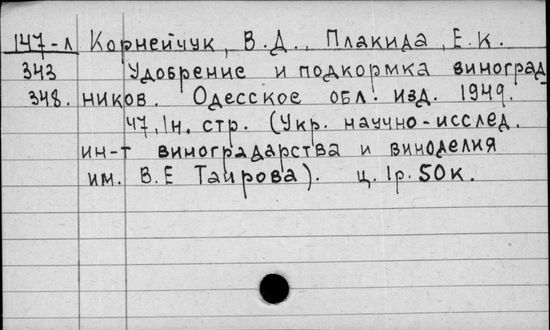 147-л Корнейчук, В.Д., Плакида, Е.К.
343 Удобрение и подкормка виноград
348. ников. Одесское обл. изд. 1949.
47, 1н. стр. (Укр. научно-исслед.
ин-т виноградарства и виноделия
им. В.Е Таирова). ц. 1р. 50к.